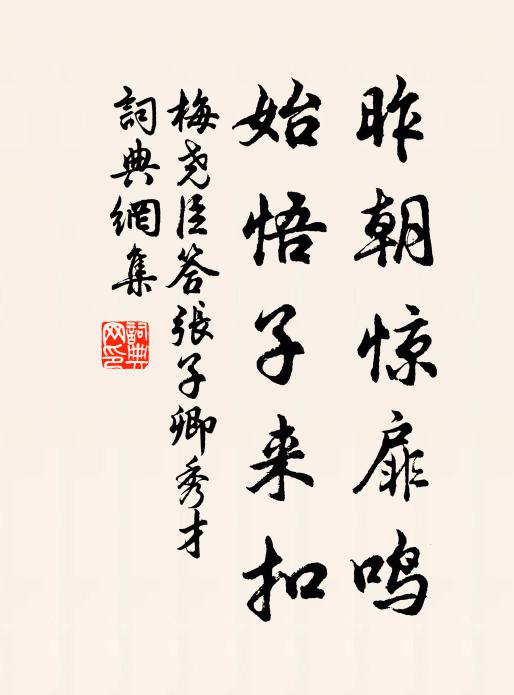 昨朝惊扉鸣
始悟子来扣
梅尧臣答張子卿秀才
詞典網集
詞典网印